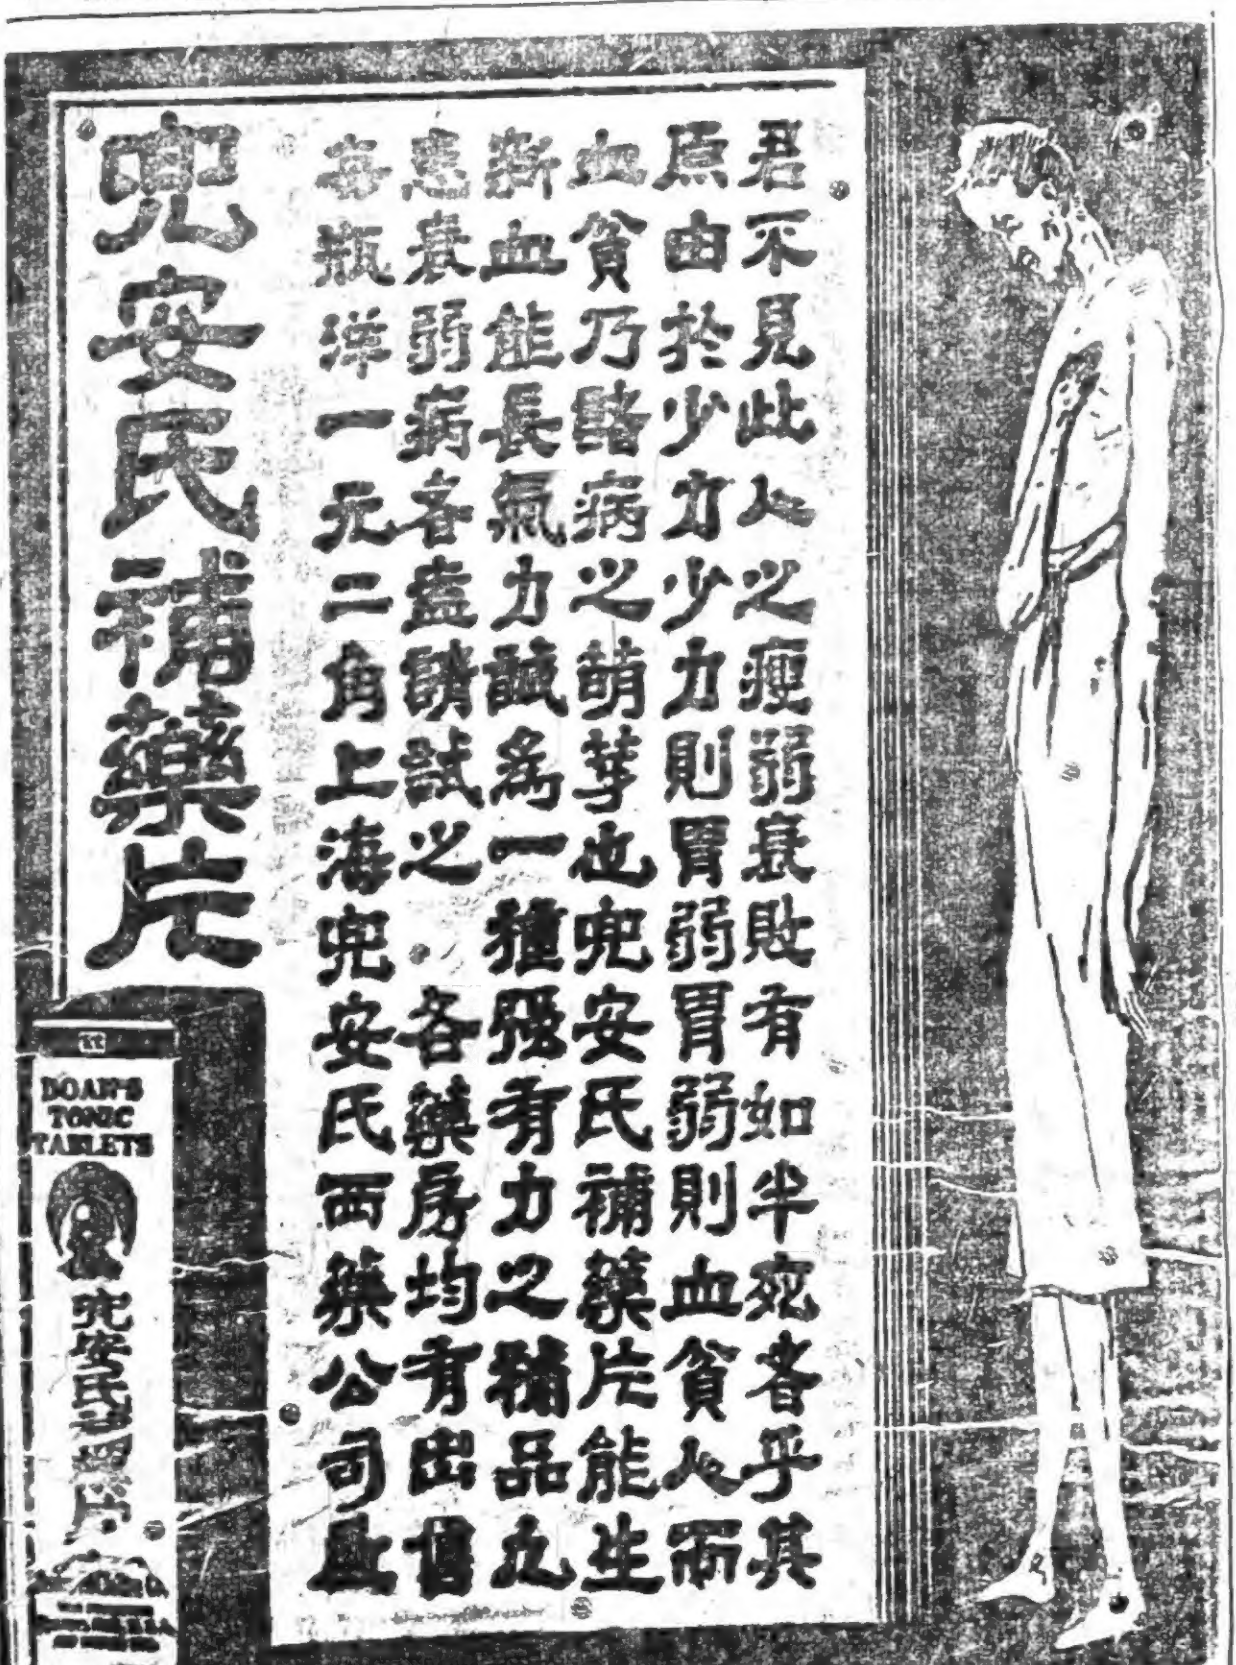 君不見此人之瘦弱衰敗有如半死者乎其
原由於少力少力則胃弱胃弱則血貧人而
血貧乃諸病之萌芽也兜安氏補藥片能生
新血能長氣力誠爲一種强有力之補品凡
患衰弱病者盍請試之 各藥房均有出售
每瓶洋一元二角上海兜安氏西藥公司啟
兜安氏補藥片
DOAN'S
TONIC
TABLETS
兜安氏片